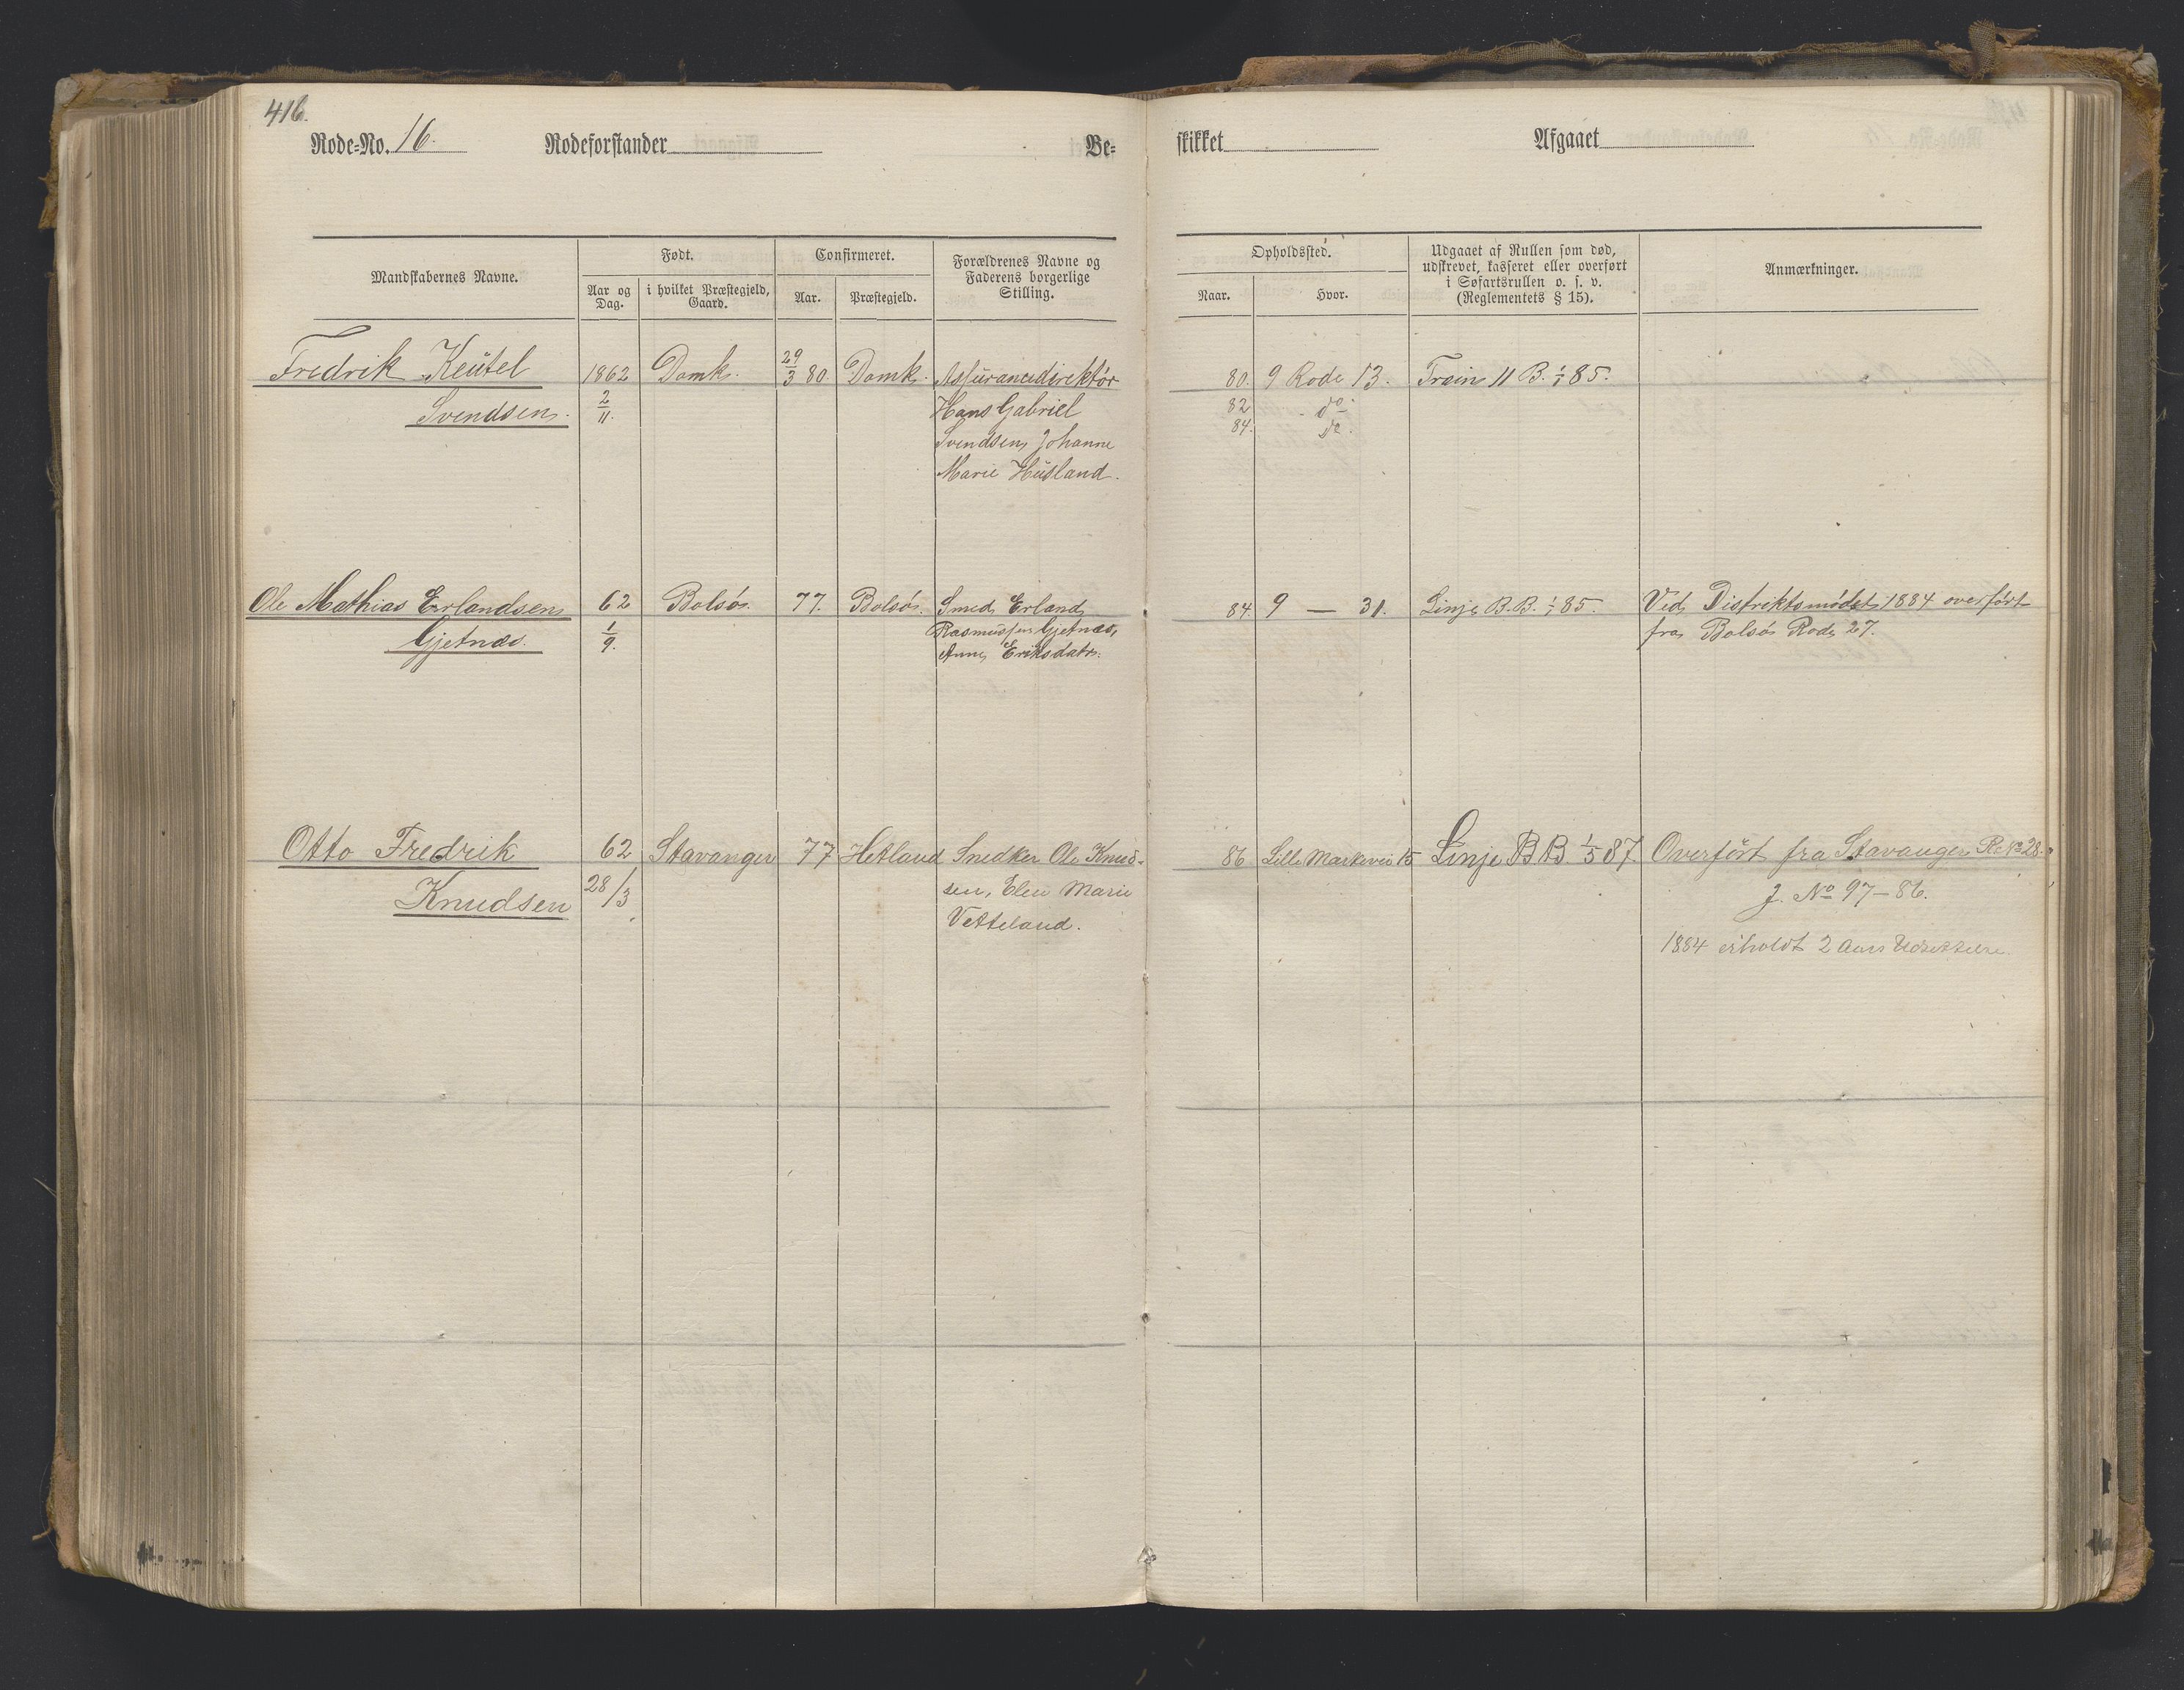 416.
Rode=No. 16. Rodeforstander Be=
skikket Afgaaet
Mandskabernes Navne.
Født.
Aar og Dag.
i hvilket Præstegjeld, Gaard.
Confirmeret.
Aar.
Præstegjeld.
Forældrenes Navne og
Faderens borgerlige
Stilling.
Opholdssted.
Naar.
Hvor.
Udgaaet af Rullen som død,
udskrevet, kasseret eller overført
i Søfartsrullen o. s. v.
(Reglementets § 15).
Anmærkninger.
Fredrik Keütel 1862 Domk. 29/3 80. Domk. Assurancedirektör 80. 9 Rode 13. Train 11 B. 1/1 85.
Svendsen. 2/11. Hans Gabriel 82 do
Svendsen, Johanne 84. do.
Marie Hüsland.
Ole Mathias Erlandsen 62 Bolsö. 77. Bolsö. Smed Erland 84. 9 — 31. Linje B.B. 1/1 85. Ved Distriktsmödet 1884 overfört
Gjetnæs. 1/9. Rasmussen Gjetnæs, fra Bolsö Rode 27.
Anne Eriksdatr.
Otto Fredrik 62 Stavanger 77 Hetland Snedker Ole Knud- 86 Lille Markevei 15 Linje B B. 1/5 87. Overfört fra Stavanger R. No 28.
Knudsen 28/3 sen, Elen Marie J. No 97-86.
Vetteland.
1884 erholdt 2 Aars